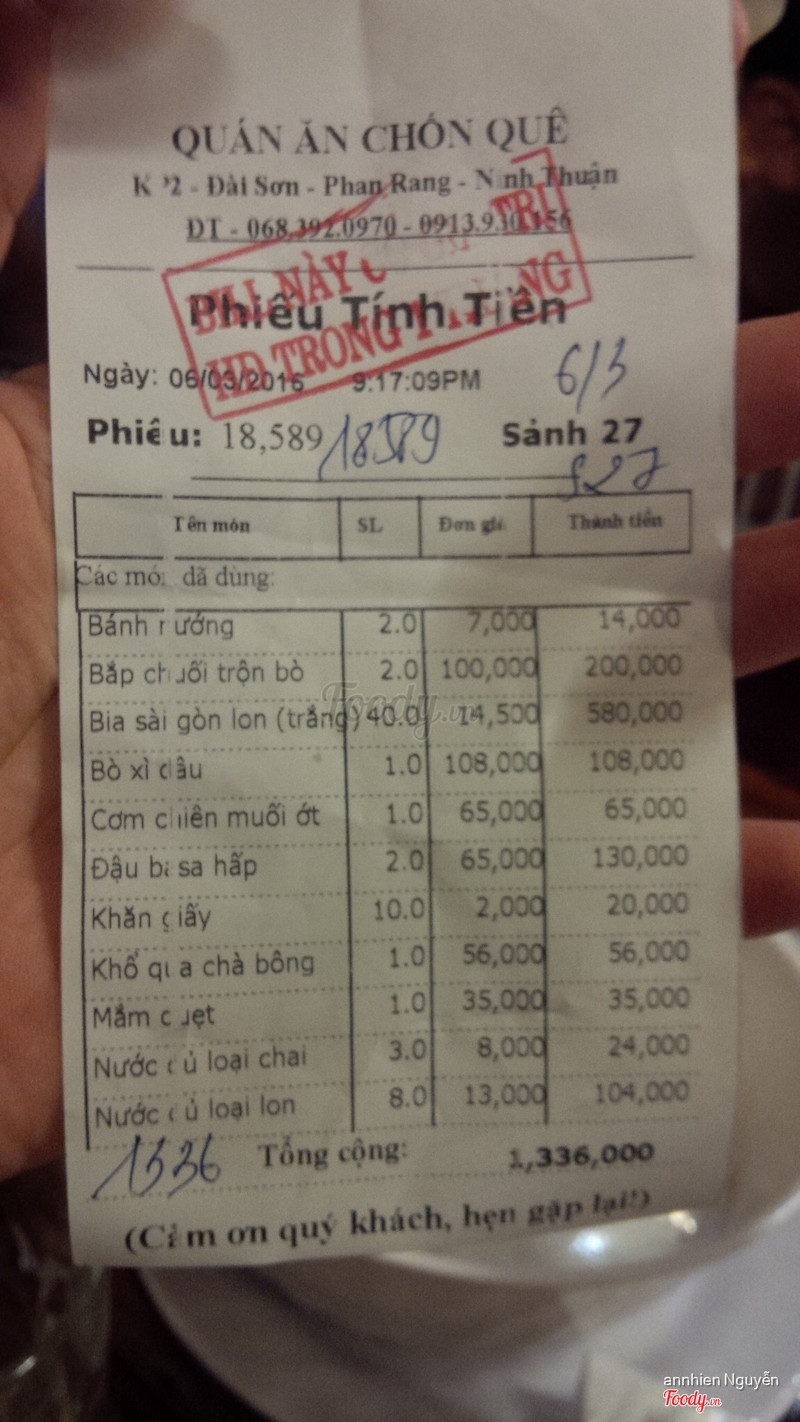 QUÁN ĂN CHỐN QUÊ
Đài Sơn - Phan Rang - Ninh Thuận
ĐT - 068.392.0970 - 0913.930.156
BILL NÀY TRỊ
HĐ TRONG
Phiếu Tính Tiền
Ngày: 06/03/2016 9:17:09PM 6/3
Phiếu: 18,589 18589 Sảnh 27
S27
Tên món SL Đơn giá Thành tiền
Các món đã dùng:
Bánh nướng 2.0 7,000 14,000
Bắp chuối trộn bò 2.0 100,000 200,000
Bia sài gòn lon (trắng) 40.0 14,500 580,000
Bò xì dầu 1.0 108,000 108,000
Cơm chiên muối ớt 1.0 65,000 65,000
Đậu bắ sa hấp 2.0 65,000 130,000
Khăn giấy 10.0 2,000 20,000
Khổ qua chà bông 1.0 56,000 56,000
Mắm quẹt 1.0 35,000 35,000
Nước củ loại chai 3.0 8,000 24,000
Nước củ loại lon 8.0 13,000 104,000
1336 Tổng cộng: 1,336,000
(Cảm ơn quý khách, hẹn gặp lại!)
Foody.vn
annhien Nguyễn
Foody.vn